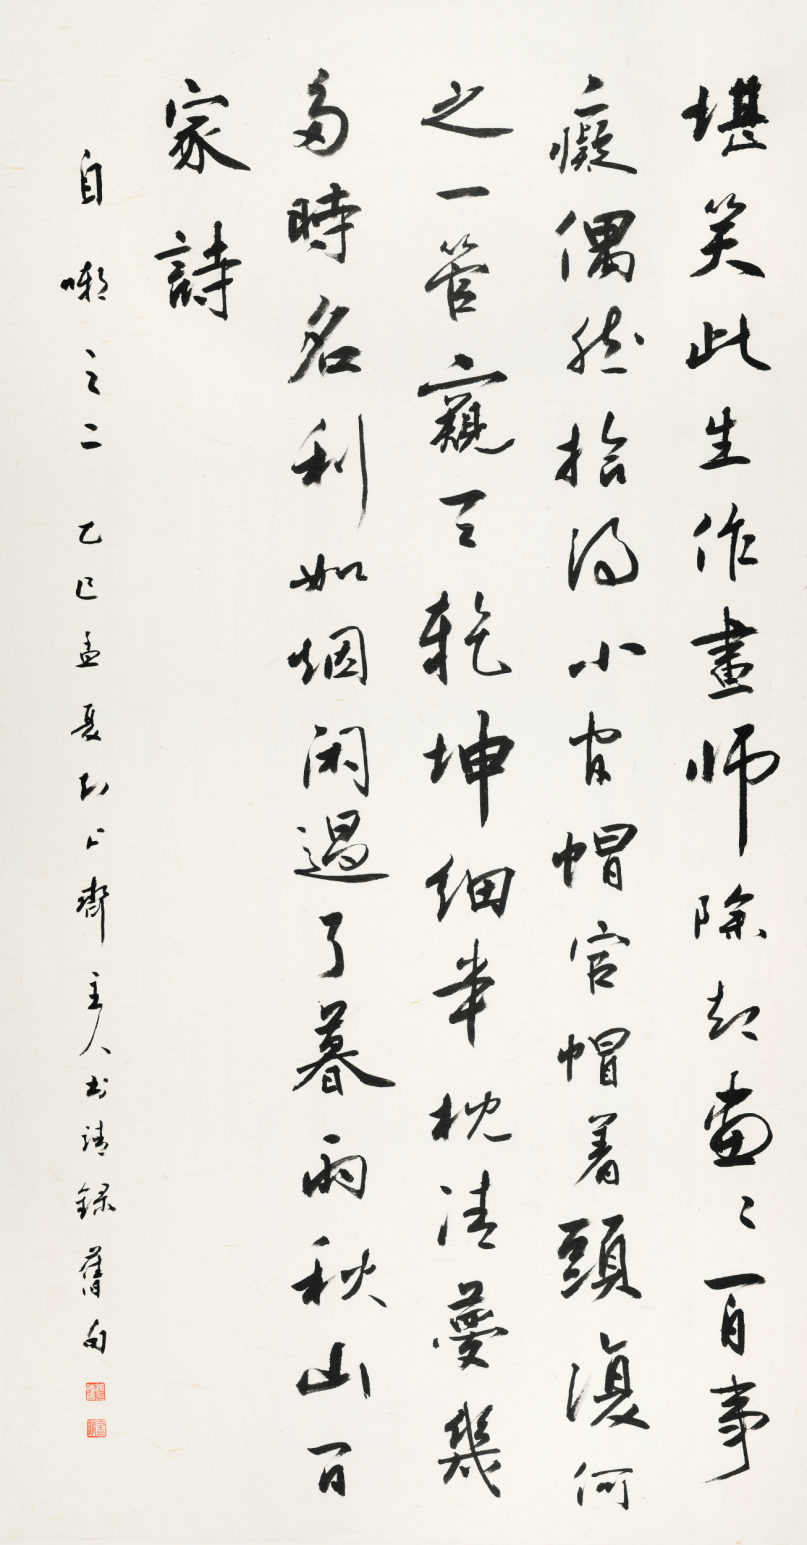 堪笑此生作畫師除却畫〻百事
癡偶然拾得小官帽官帽着頭復何
之一管窺天乾坤細半枕清夢幾
多時名利如烟閑過了暮雨秋山百
家詩
自嘲之二 乙巳孟夏 齋主人 清錄舊句